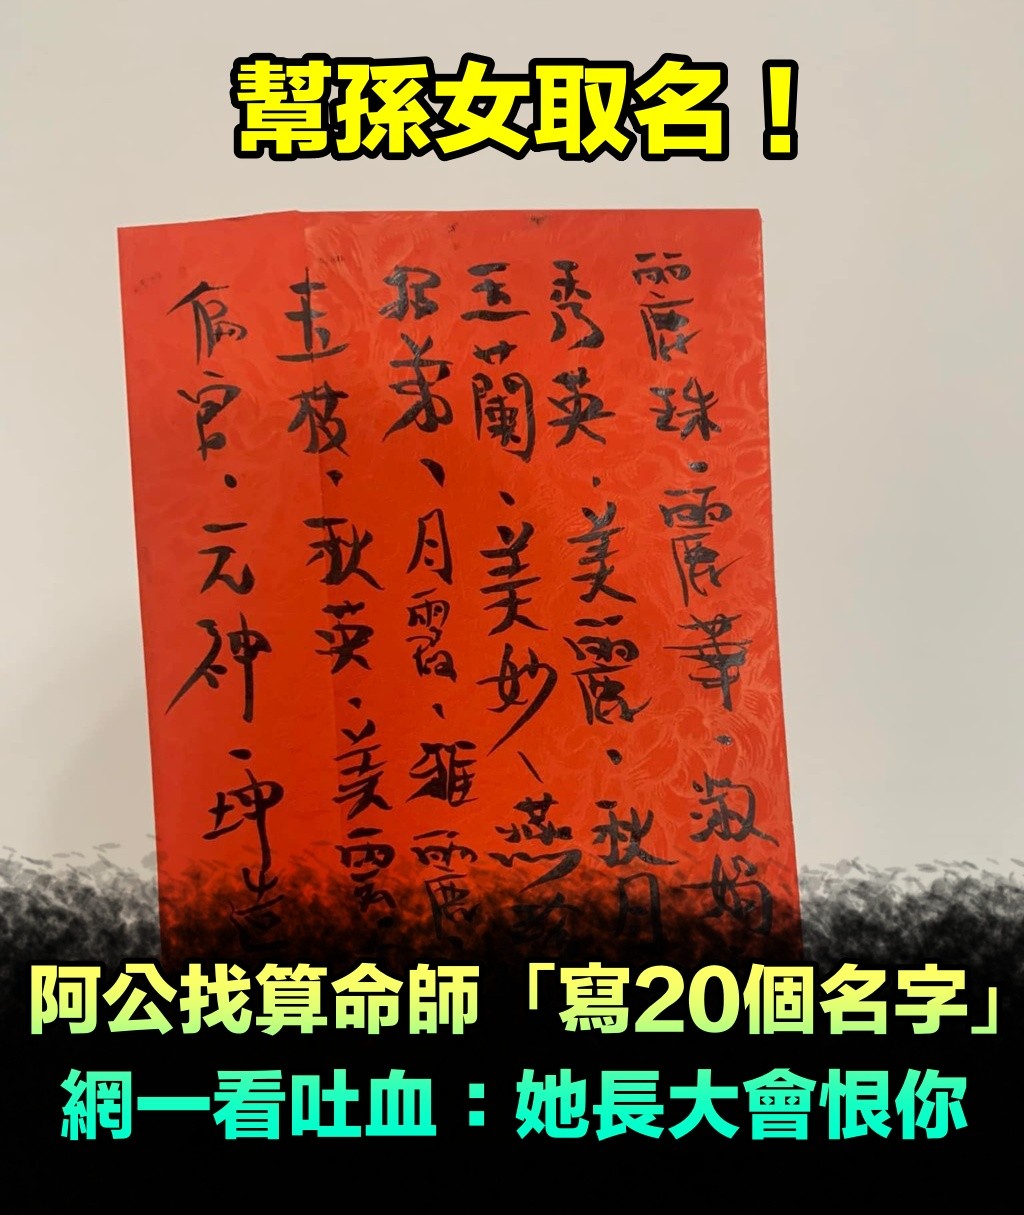 幫孫女取名！
麗珠．麗華．淑娟
秀英．美麗．秋月
玉蘭、美妙、燕
招弟、月霞、雅麗．
玉枝．秋英．美雲．
偏官．元神．坤造
阿公找算命師「寫20個名字」
網一看吐血：她長大會恨你